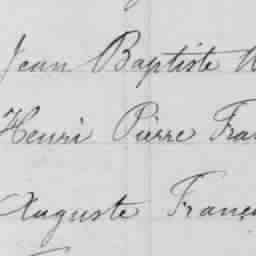 Jean Baptiste
Henri Pierre Fran
Auguste Franç